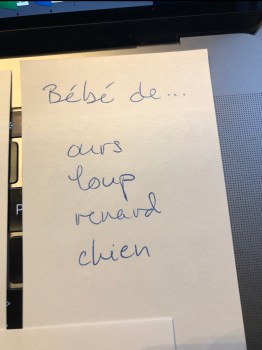 Bébé de...
ours
loup
renard
chien